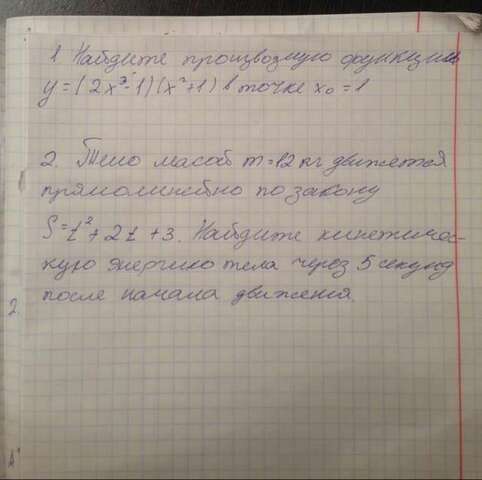 1 Найдите производную функции
y=(2x³-1)(x²+1) в точке x₀=1
2. Тело массой m=12 кг движется
прямолинейно по закону
S=t²+2t+3. Найдите кинетичес-
кую энергию тела через 5 секунд
после начала движения.
2.